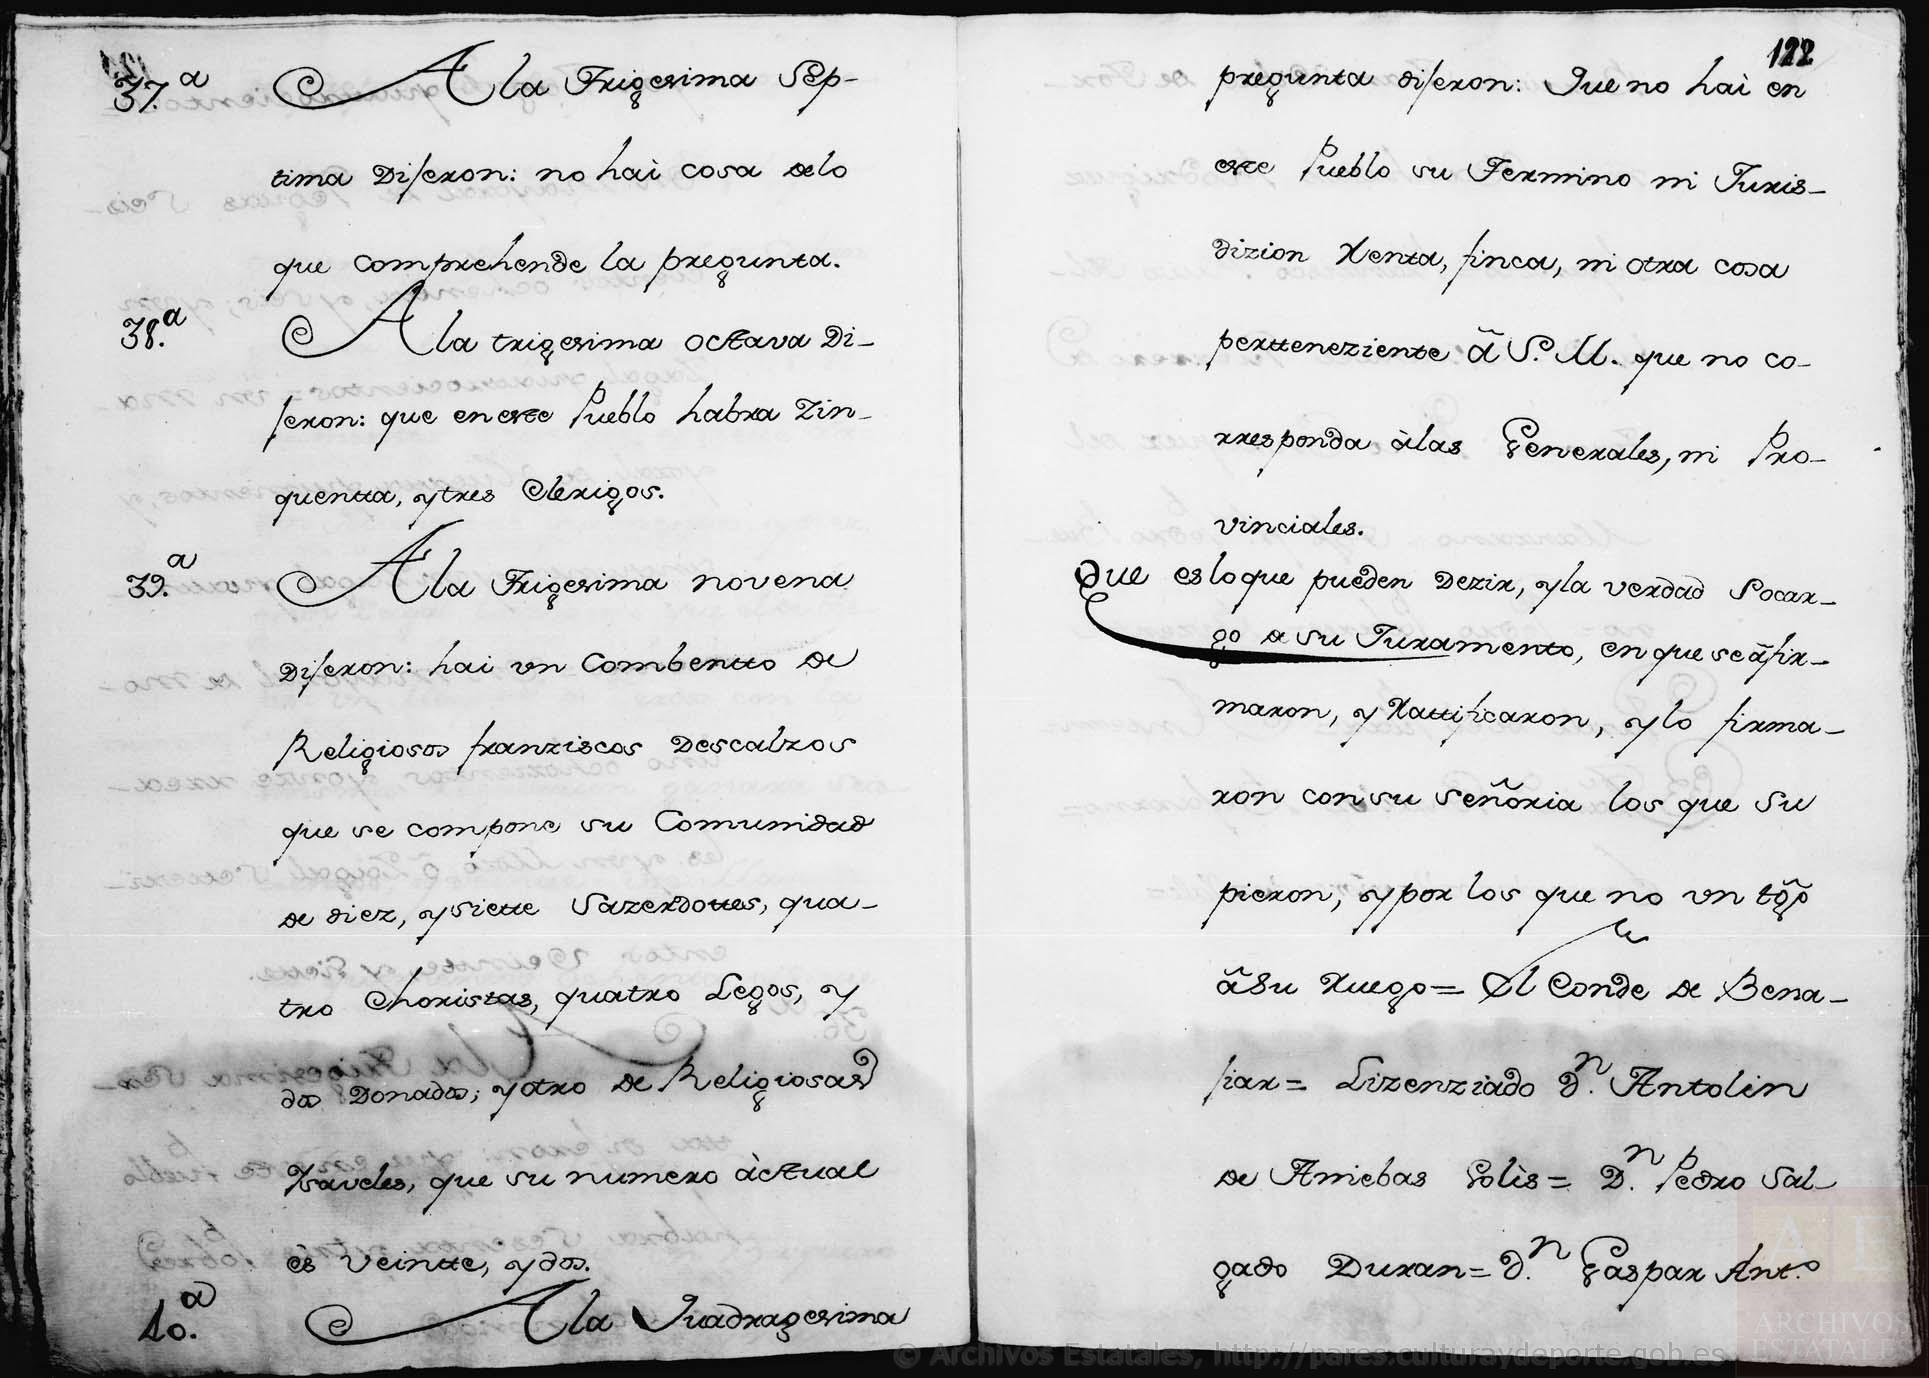 37.ª A la Trigesima Sep-
tima Dijeron: no hai cosa delo
que comprehende la pregunta.
38.ª A la trigesima octava Di-
jeron: que en este Pueblo habra Zin-
quentta, y tres Clerigos.
39.ª A la Trigesima novena
Dijeron: hai vn Combentto de
Religiosos franziscos Descalzos
que se compone su Comunidad
de diez, y siette Sazerdottes, qua-
tro Choristas, quatro Legos, y
dos Donados; y otro de Religiosas
Ysaveles, que su numero àctual
es veintte, y dos.
40.ª A la Quadragesima
122
pregunta dijeron: Que no hai en
este Pueblo su Termino ni Juris-
dizion Renta, finca, ni otra cosa
pertteneziente â S. M. que no co-
rresponda àlas Generales, ni Pro-
vinciales.
Que es loque pueden Dezir, y la verdad Socar-
go de su Juramento, en que se âfir-
maron, y Rattificaron, y lo firma-
ron con su señoria los que su
pieron, y por los que no vn tg̃o
â su Ruego = El Conde de Bena-
fiar = Lizenziado D.n Antolin
de Arriebas Solis = D.n Pedro Sal-
gado Duran = D.n Gaspar Ant.o
© Archivos Estatales, http://pares.culturaydeporte.gob.es
AE
ARCHIVOS
ESTATALES